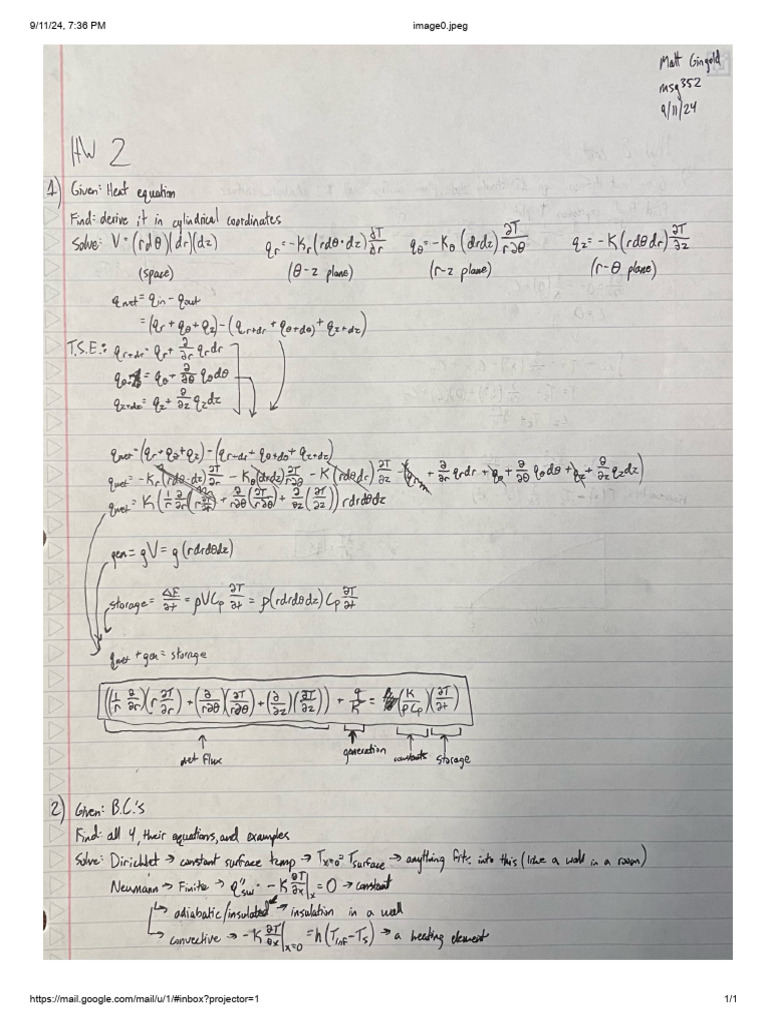 9/11/24, 7:36 PM image0.jpeg
Matt Gingold
msg352
9/11/24
HW 2
1) Given: Heat equation
Find: derive it in cylindrical coordinates
Solve: V = (rdθ)(dr)(dz) qr = -Kr(rdθ·dz)∂T/∂r qθ = -Kθ(drdz)∂T/r∂θ qz = -K(rdθdr)∂T/∂z
(space) (θ-z plane) (r-z plane) (r-θ plane)
qnet = qin - qout
= (qr + qθ + qz) - (qr+dr + qθ+dθ + qz+dz)
T.S.E.: qr+dr = qr + ∂/∂r qrdr
= qθ + ∂/∂θ qθdθ
qz+dz = qz + ∂/∂z qzdz
qnet = (qr + qθ + qz) - (qr+dr + qθ+dθ + qz+dz)
qnet = -Kr(rdθ·dz)∂T/∂r - Kθ(drdz)∂T/r∂θ - K(rdθdr)∂T/∂z - (qr + ∂/∂r qrdr + qθ + ∂/∂θ qθdθ + qz + ∂/∂z qzdz)
qnet = K(1/r ∂/∂r(r∂T/∂r) + ∂/r∂θ(∂T/r∂θ) + ∂/∂z(∂T/∂z)) rdrdθdz
gen = gV = g(rdrdθdz)
storage = ΔE/∂t = ρVCp ∂T/∂t = ρ(rdrdθdz)Cp ∂T/∂t
qnet + gen = storage
((1/r ∂/∂r)(r∂T/∂r) + (∂/r∂θ)(∂T/r∂θ) + (∂/∂z)(∂T/∂z)) + q/K = (K/ρCp)(∂T/∂t)
net flux generation constants storage
2) Given: B.C.'s
Find: all 4, their equations, and examples
Solve: Dirichlet → constant surface temp → Tx=0 = Tsurface → anything fits into this (like a wall in a room)
Neumann → Finite → q"sw = -K ∂T/∂x|x = 0 → constant
↳ adiabatic/insulated → insulation in a wall
↳ convective → -K ∂T/∂x|x=0 = h(Tinf - Ts) → a heating element
https://mail.google.com/mail/u/1/#inbox?projector=1 1/1